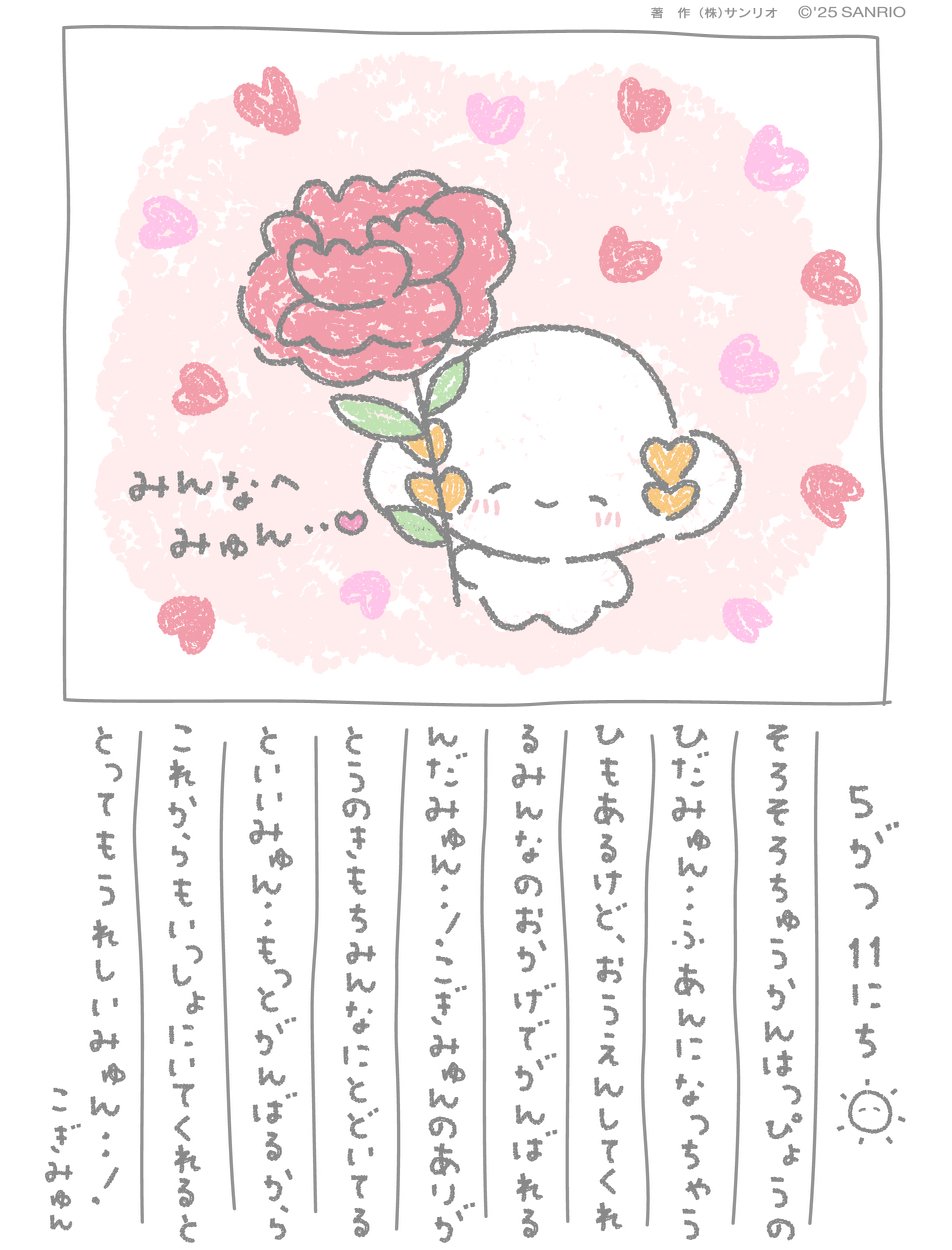 著 作 (株)サンリオ ©'25 SANRIO
みんなへ
みゅん‥
5がつ 11にち
そろそろちゅうかんはっぴょうの
ひだみゅん‥ふあんになっちゃう
ひもあるけど、おうえんしてくれ
るみんなのおかげでがんばれる
んだみゅん‥!こぎみゅんのありが
とうのきもちみんなにとどいてる
といいみゅん‥もっとがんばるから
これからもいっしょにいてくれると
とってもうれしいみゅん‥!
こぎみゅん